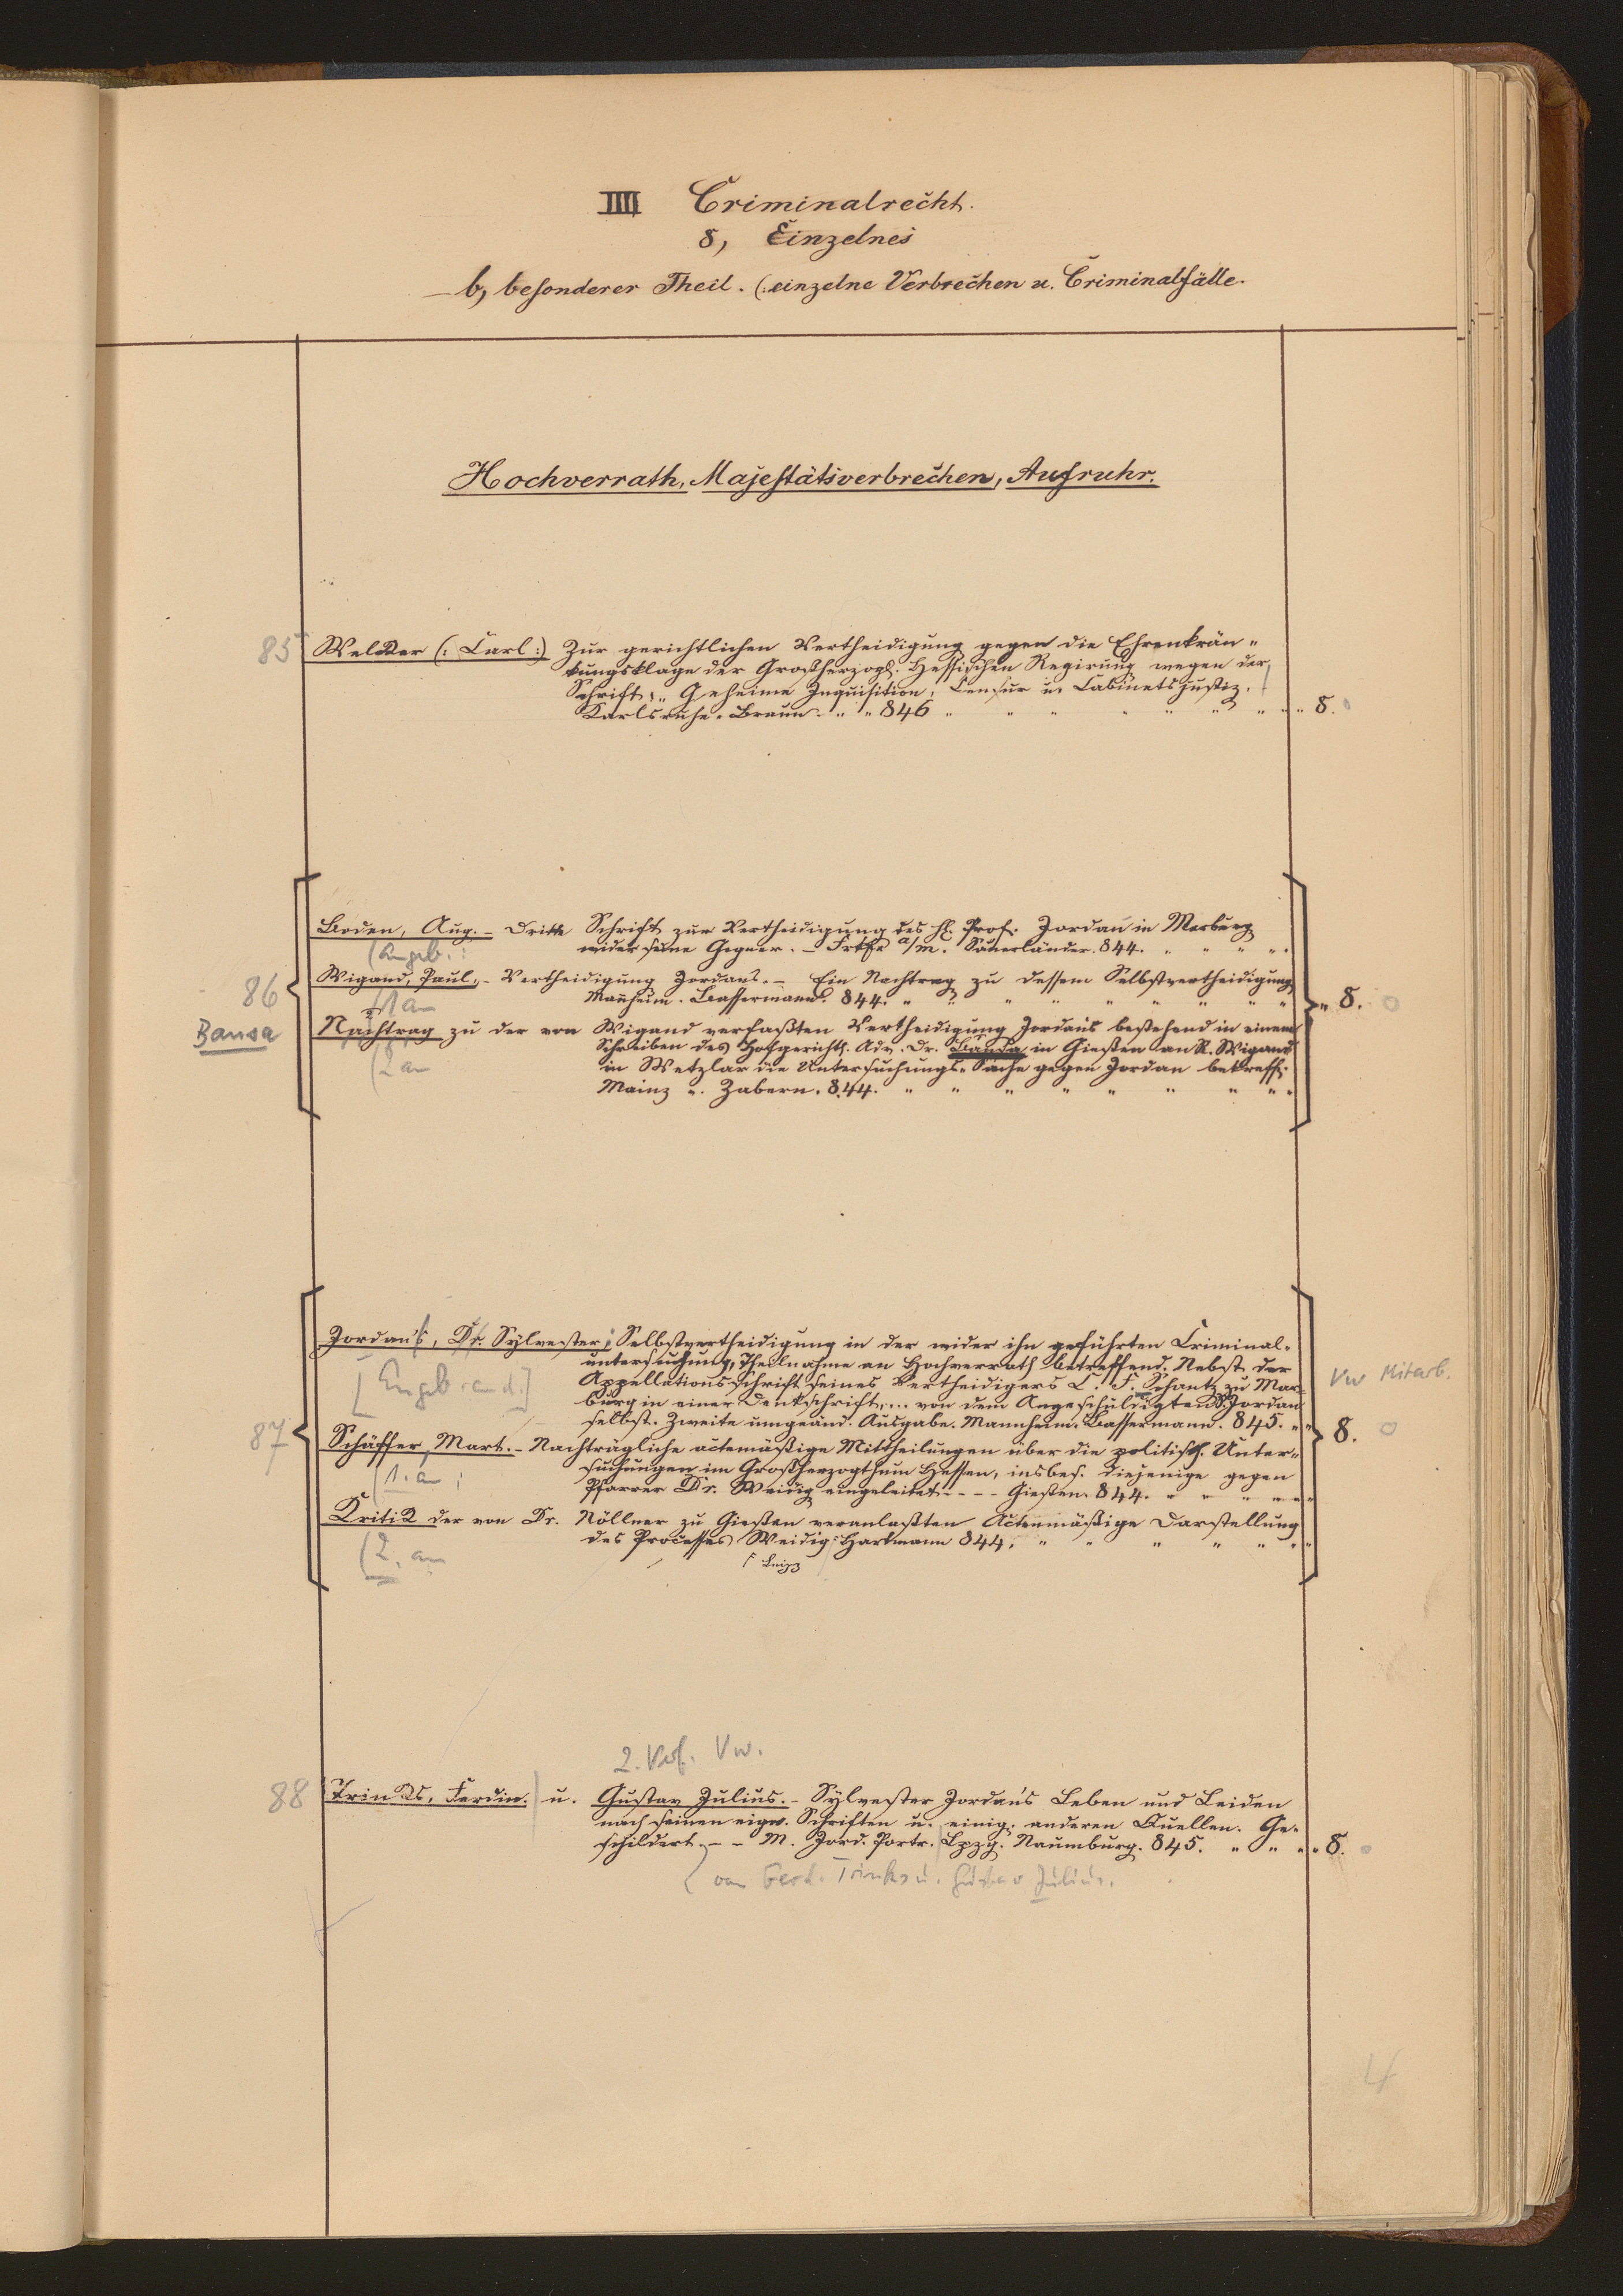 IIII Criminalrecht.
8, Einzelnes
b, besonderer Theil. (: einzelne Verbrechen u. Criminalfälle.
Hochverrath, Majestätsverbrechen, Aufruhr.
85 Welcker (: Carl :) Zur gerichtlichen Vertheidigung gegen die Ehrenkrän„
kungsklage der Großherzogl. Hessischen Regirung wegen der
Schrift: „Geheime Inquisition, Censur u. Cabinetsjustiz.
Karlsruhe. Braun. „ „ 846 „ „ „ „ „ „ „ „ 8.
Boden, Aug. – Dritte Schrift zur Vertheidigung des H. Prof. Jordan in Marburg
(angeb.:
wider seine Gegner. – Frkfr a/m. Sauerländer. 844. „ „ „ „
86 Wigand, Paul, – Vertheidigung Jordans. – Ein Nachtrag zu dessem Selbstvertheidigung
(1 an
Manheim. Bassermann. 844. „ „ „ „ „ „ „ „ „ 8.
Bansa
Nachtrag zu der von Wigand verfaßten Vertheidigung Jordans bestehend in einem
Schreiben des Hofgerichts. Adv. Dr. Bansa in Gießen an R. Wigand
(2 an
in Wetzlar die Untersuchungs-Sache gegen Jordan betreff.
Mainz „. Zabern. 844. „ „ „ „ „ „ „ „
Jordan's, Dr. Sylvester; Selbstvertheidigung in der wider ihn geführten Criminal-
untersuchung, Theilnahme an Hochverrath betreffend. Nebst der
[Engeb. and.]
Appellationsschrift seines Vertheidigers C. F. Schantz zu Mar-
Vw Mitarb.
burg in einer Denkschrift,... von dem Angeschuldigten S. Jordan
selbst. Zweite umgeänd. Ausgabe. Mannheim. Bassermann. 845. „ „
87 8.
Schäffer, Mart. – Nachträgliche actemäßige Mittheilungen über die politisch. Unter-
suchungen im Großherzogthum Hessen, insbes. diejenige gegen
(1. an
Pfarrer Dr. Weidig eingeleitet - - - - Gießen. 844. „ „ „ „ „
Kritik der von Dr. Nöllner zu Gießen veranlaßten Actenmäßige Darstellung
des Processes Weidig: Hartmann 844, „ „ „ „ „ „
(2. an
Leipz
2. Verf. Vw.
88 Trinks, Ferdin. u. Gustav Julius. – Sylvester Jordans Leben und Leiden
nach seinen eign. Schriften u. einig. anderen Quellen. Ge-
schildert. – – M. Jord. Portr. Lpzg. Naumburg. 845. „ „ „ „ 8.
von Ferd. Trinks u. Gustav Julius.
4